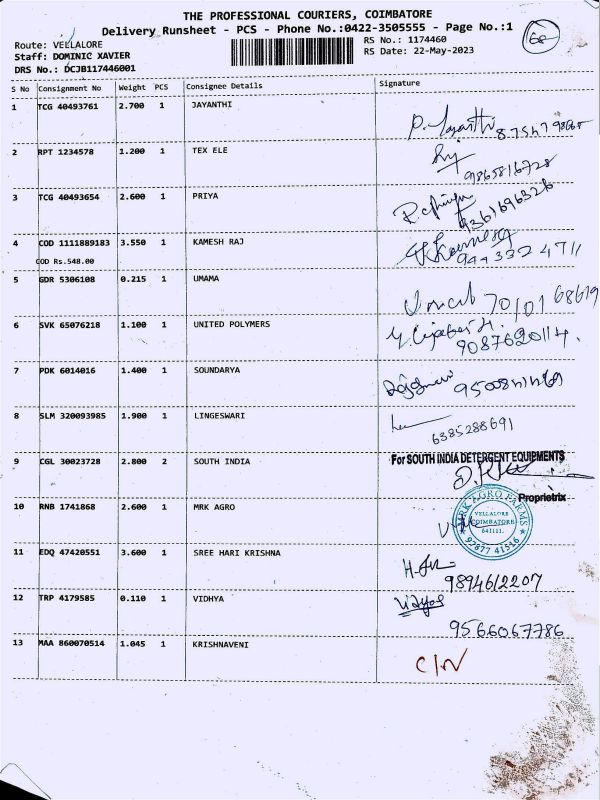 THE PROFESSIONAL COURIERS, COIMBATORE
Delivery Runsheet - PCS - Phone No.:0422-3505555 - Page No.:1
Route: VELLALORE
RS No.: 1174460
Staff: DOMINIC XAVIER
RS Date: 22-May-2023
DRS No.: DCJB117446001
S No Consignment No Weight PCS Consignee Details Signature
1 TCG 40493761 2.700 1 JAYANTHI
P. Jayanthi
2 RPT 1234578 1.200 1 TEX ELE
9865816728
3 TCG 40493654 2.600 1 PRIYA
9361696326
4 COD 1111889183 3.550 1 KAMESH RAJ
COD Rs.548.00
9443324711
5 GDR 5306108 0.215 1 UMAMA
70101 68619
6 SVK 65076218 1.100 1 UNITED POLYMERS
9087620114.
7 PDK 6014016 1.400 1 SOUNDARYA
8 SLM 320093985 1.900 1 LINGESWARI
6385288691
9 CGL 30023728 2.800 2 SOUTH INDIA
For SOUTH INDIA DETERGENT EQUIPMENTS
Proprietrix
10 RNB 1741868 2.600 1 MRK AGRO
MRK AGRO FARMS
VELLALORE
COIMBATORE
641111.
97877 41516
11 EDQ 47420551 3.600 1 SREE HARI KRISHNA
9894612207
12 TRP 4179585 0.110 1 VIDHYA
Vidhya
9566067786
13 MAA 860070514 1.045 1 KRISHNAVENI
C/N